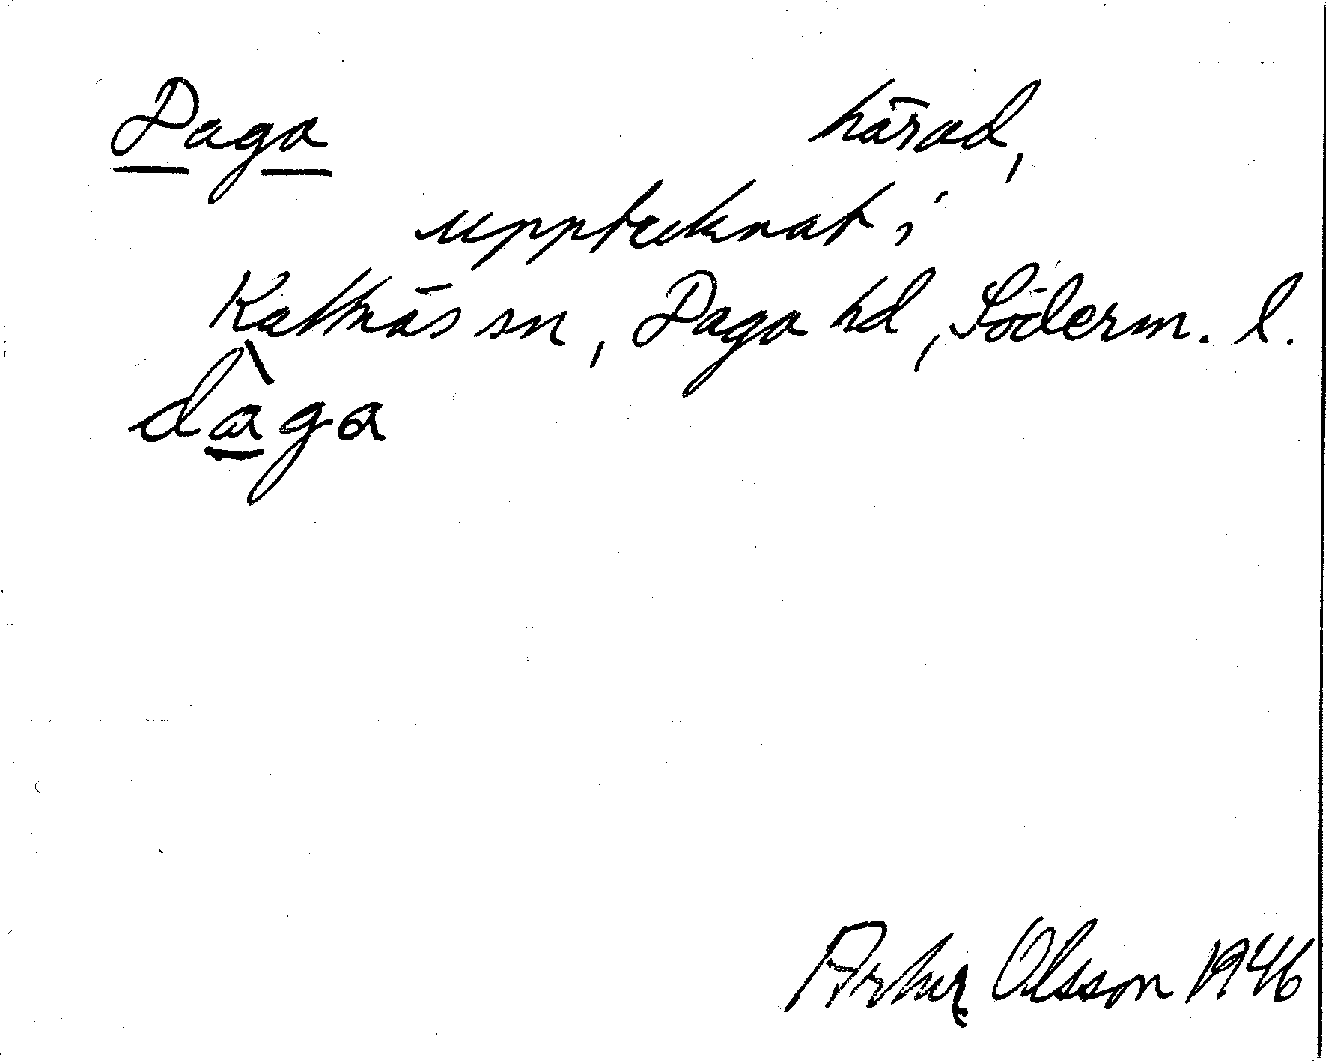 Daga härad,
upptecknat i
Kattnäs sn, Daga hd, Söderm. l.
dàga
Arthur Olsson 1946